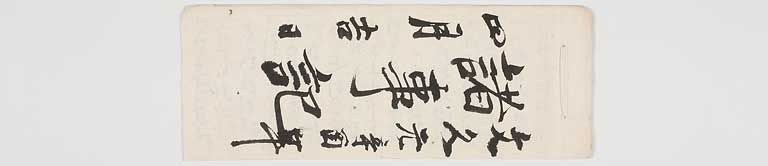 文久元辛酉年
諸事記
四月吉日